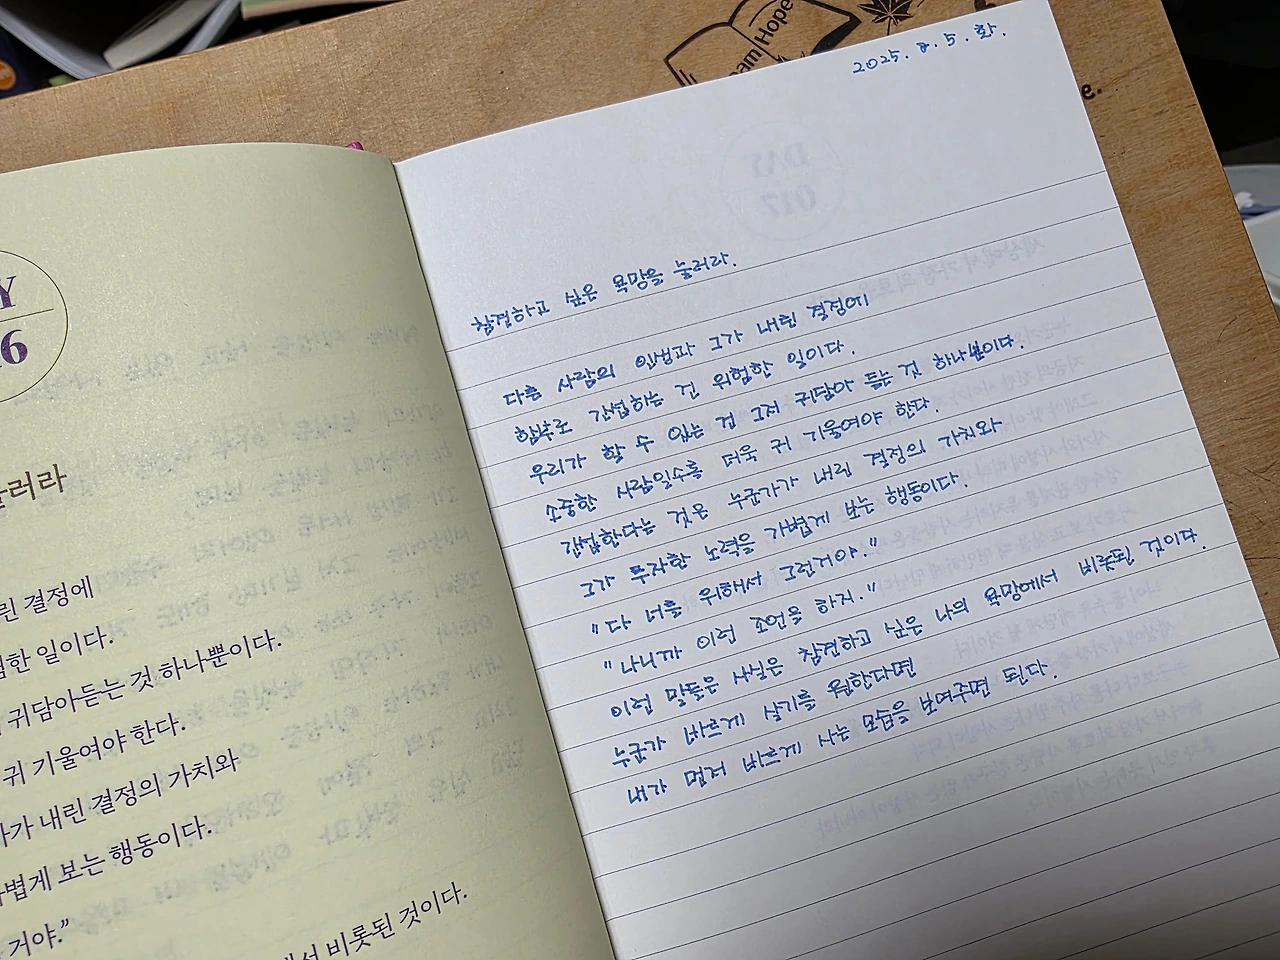 Hope
e.
2025. 8. 5. 화.
Y
6
눌러라
린 결정에
험한 일이다.
귀담아듣는 것 하나뿐이다.
귀 기울여야 한다.
가가 내린 결정의 가치와
볍게 보는 행동이다.
거야.”
에서 비롯된 것이다.
DAY
017
참견하고 싶은 욕망을 눌러라.
다른 사람의 인생과 그가 내린 결정에
함부로 간섭하는 건 위험한 일이다.
우리가 할 수 있는 건 그저 귀담아 듣는 것 하나뿐이다.
소중한 사람일수록 더욱 귀 기울여야 한다.
간섭한다는 것은 누군가가 내린 결정의 가치와
그가 투자한 노력을 가볍게 보는 행동이다.
"다 너를 위해서 그런거야."
"나니까 이런 조언을 하지."
이런 말들은 사실은 참견하고 싶은 나의 욕망에서 비롯된 것이다.
누군가 바르게 살기를 원한다면
내가 먼저 바르게 사는 모습을 보여주면 된다.